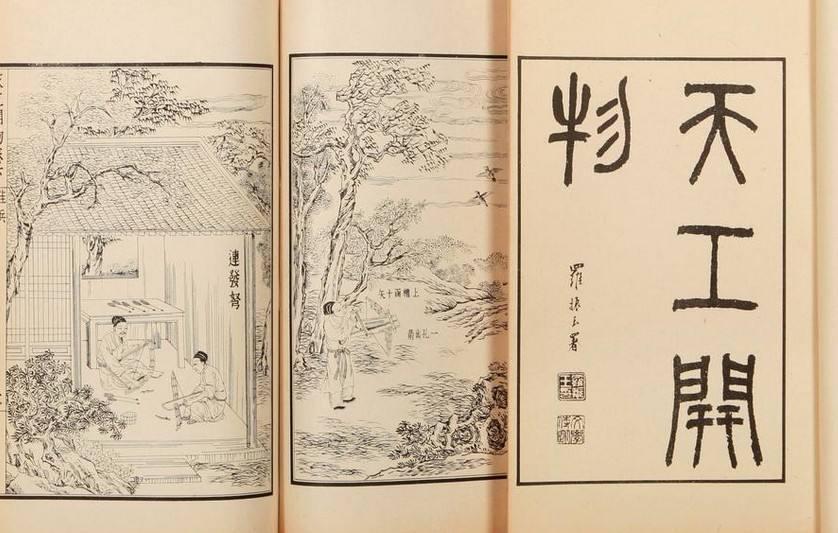 天工開
物
羅振玉署
上槽函十矢
一孔出箭
連發弩